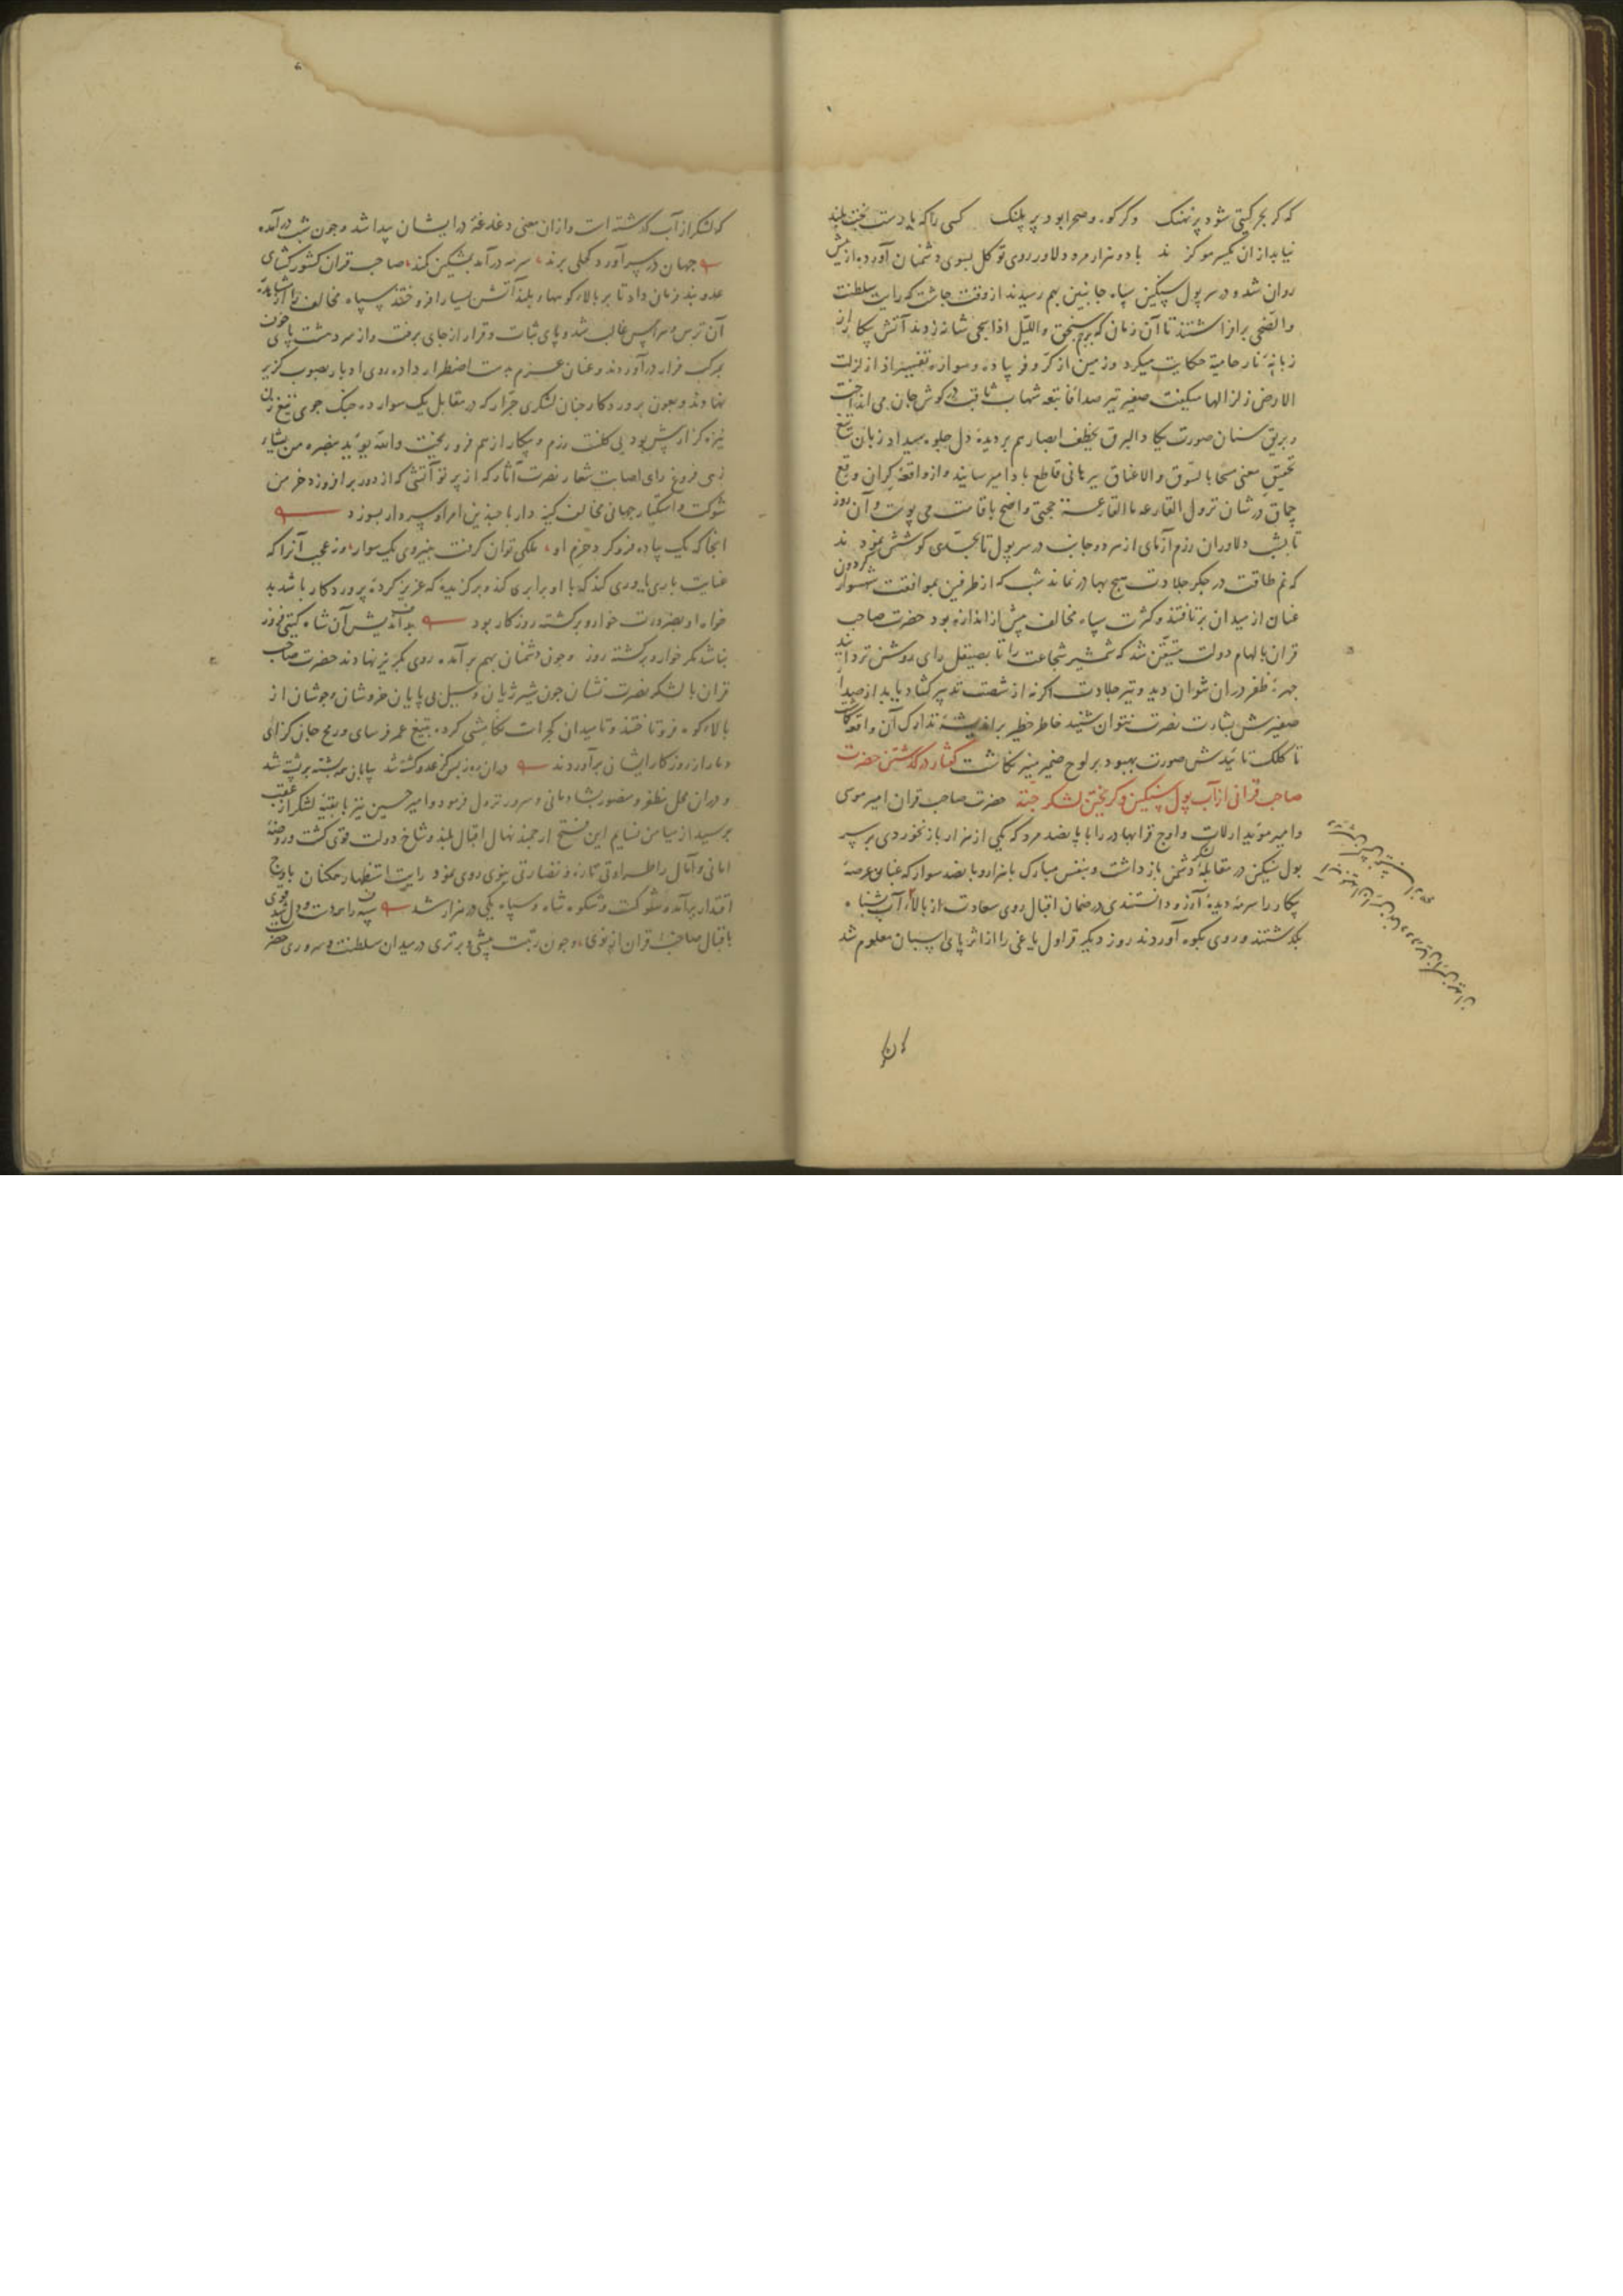 که کر بحر کیتی شود پر نهنک وکر کوه وصحرا بود پر پلنک کسی را که یارست بخت بلند
نیاید از ان یکسر مو کزند با دو هزار مرد دلاور روی توکل بسوی دشمنان آورده از پیش
روان شد و در سر پول سنکین سپاه جانبین بهم رسیدند از وقت چاشت که رایت سلطنت
والضحی بر افراشتند تا آن زمان که پرچم سنجق واللیل اذا سجی شانه زدند آتش پیکار از
زبانهٔ نار حامیة حکایت میکرد وزمین از کر وفر پیاده وسواره تفسیر اذا زلزلت
الارض زلزالها میکفت صفیر تیر صدا فاتبعه شهاب ثاقب در کوش جان می انداخت
وبریق سنان صورت یکاد البرق یخطف ابصارهم بر دیدهٔ دل جلوه میداد زبان تیغ
تحقیق معنی مسحا بالسوق والاعناق ببرهانی قاطع با دا میرسانید واز واقعهٔ کران وقع
چماق در شان نزول القارعة ما القارعة حجتی واضح باقامت می پیوست وآن روز
تا بشب دلاوران رزم آزمای از هر دو جانب در سر پول تا بحدی کوشش نمودند
که نم طاقت در جکر جلادت هیچ بهادر نماند شب که از طرفین بموافقت شهسوار کردون
عنان از میدان بر تافتند وکثرت سپاه مخالف بیش از اندازه بود حضرت صاحب
قران بالهام دولت متیقن شد که شمشیر شجاعت را تا بصیقل رای روشن نزدایند
چهرهٔ ظفر در ان نتوان دید وتیر جلادت اکر نه از شصت تدبیر کشاد یابد از صدا
صفیرش بشارت نصرت نتوان شنید خاطر خطیر بر اندیشهٔ تدارک آن واقعه کماشت
تا کلک تائیدش صورت بهبود بر لوح ضمیر منیر نکاشت کفتار در کذشتن حضرت
صاحب قرانی از آب پول سنکین وکریختن لشکر جته حضرت صاحب قران امیر موسی
وامیر موید ارلات واوج قرا بهادر را با پانصد مرد که یکی از هزار باز نخوردی بر سر
پول سنکین در مقابلهٔ لشکر دشمن باز داشت وبنفس مبارک با هزار وپانصد سوار که غبار عرصهٔ
پیکار را سرمهٔ دیدهٔ آرزو دانستندی در ضمان اقبال روی سعادت از بالاء آب شناه
بکذشتند وروی بکوه آوردند روز دیکر قراول یاغی را از اثر پای اسبان معلوم شد
که لشکر از آب کذشته است واز ان معنی دغدغهٔ در ایشان پیدا شد وچون شب در آمده
جهان در سر آورد کحلی پرند، سر مه در آمد بمشکین کمند، صاحب قران کشورکشای
عدوبند فرمان داد تا بر بالاء کوهها بلند آتش بسیار افروختند سپاه مخالف را از مشاهدهٔ
آن ترس وهراس غالب شد وپای ثبات وقرار از جای برفت واز سر دهشت پای چون
بمرکب فرار در آوردند وعنان عزم بدست اضطرار داده روی ادبار بصوب کریز
نهادند وبعون پروردکار چنان لشکری جرار که در مقابل یک سوار ده جنک جوی تیغ زن
نیزه کزار بیش بود بی کلفت رزم وپیکار از هم فرو ریخت والله یوید بنصره من یشاء
زهی فروغ رای اصابت شعار نصرت آثار که از پرتو آتشی که از دور بر افروزد خرمن
شوکت واستکبار جهانی مخالف کینه دار با چندین امرا وسپهدار بسوزد
انجا که یک پیاده فرو کرد حزم او، ملکی توان کرفت بنیروی یک سوار، وزعجب آنرا که
عنایت باری یاوری کند که با او برابری کند وبرکزیدهٔ که عزیز کردهٔ پروردکار باشد بد
خواه او بضرورت خوار وبرکشته روزکار بود بد اندیش آن شاه کیتی فروز
نباشد مکر خوار وبرکشته روز وچون دشمنان بهم بر آمده روی بکریز نهادند حضرت صاحب
قران با لشکر نصرت نشان چون شیر ژیان وسیل بی پایان خروشان وجوشان از
بالاء کوه فرو تاختند وتا میدان کجرات تکامیشی کرده بتیغ عمر فرسای ورمح جان کزای
دمار از روزکار ایشان برآوردند در ان روز بس کز عدو کشته شد بیابان همه پشته بر پشته شد
ودر ان محل مظفر ومنصور بشادمانی وسرور نزول فرمود وامیر حسین نیز با بقیهٔ لشکر از عقب
برسید از میامن نسایم این فتح ارجمند نهال اقبال بلند وشاخ دولت قوی کشت وروضهٔ
امانی وآمال را طراوتی تازه ونضارتی بنوی روی نمود رایت استظهار همکنان باوج
اقتدار برآمد وشوکت وشکوه شاه وسپاه یکی در هزار شد سپه را همه دست ودل شد قوی
باقبال صاحب قران از نوی، وچون رتبت پیشی وبرتری در میدان سلطنت وسروری حضر